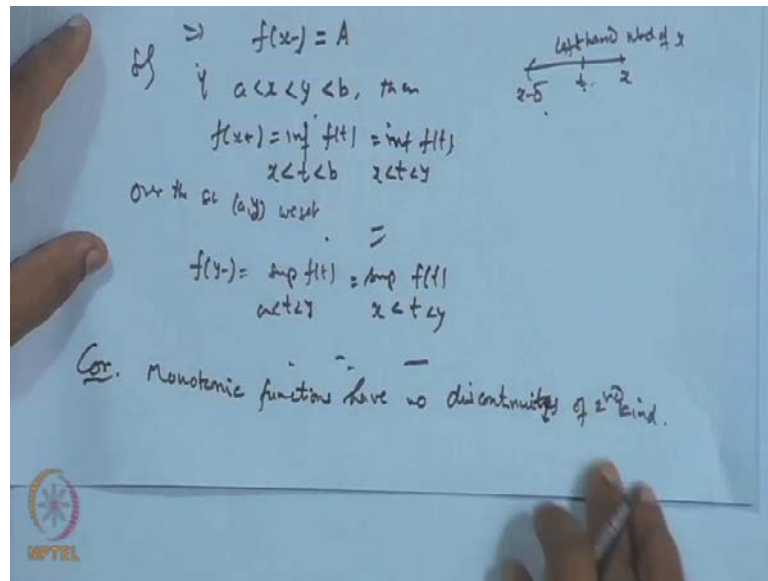 ⇒ f(x-) = A
left hand nbd of x
x-δ t x
If a<x<y<b, then
f(x+) = inf f(t) = inf f(t)
x<t<b x<t<y
Over the (a,y) we get
=
f(y-) = sup f(t) = sup f(t)
a<t<y x<t<y
Cor. Monotonic functions have no discontinuities of 2nd kind.
NPTEL